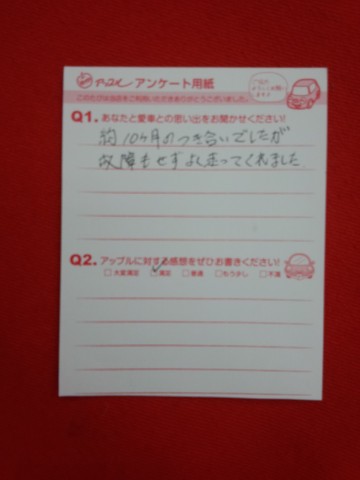 アップル アンケート用紙
このたびは当店をご利用いただきありがとうございました。
Q1. あなたと愛車との思い出をお聞かせください!
約10ヶ月のつき合いでしたが
故障もせずよく走ってくれました。
Q2. アップルに対する感想をぜひお書きください!
□大変満足 □満足 □普通 □もう少し □不満